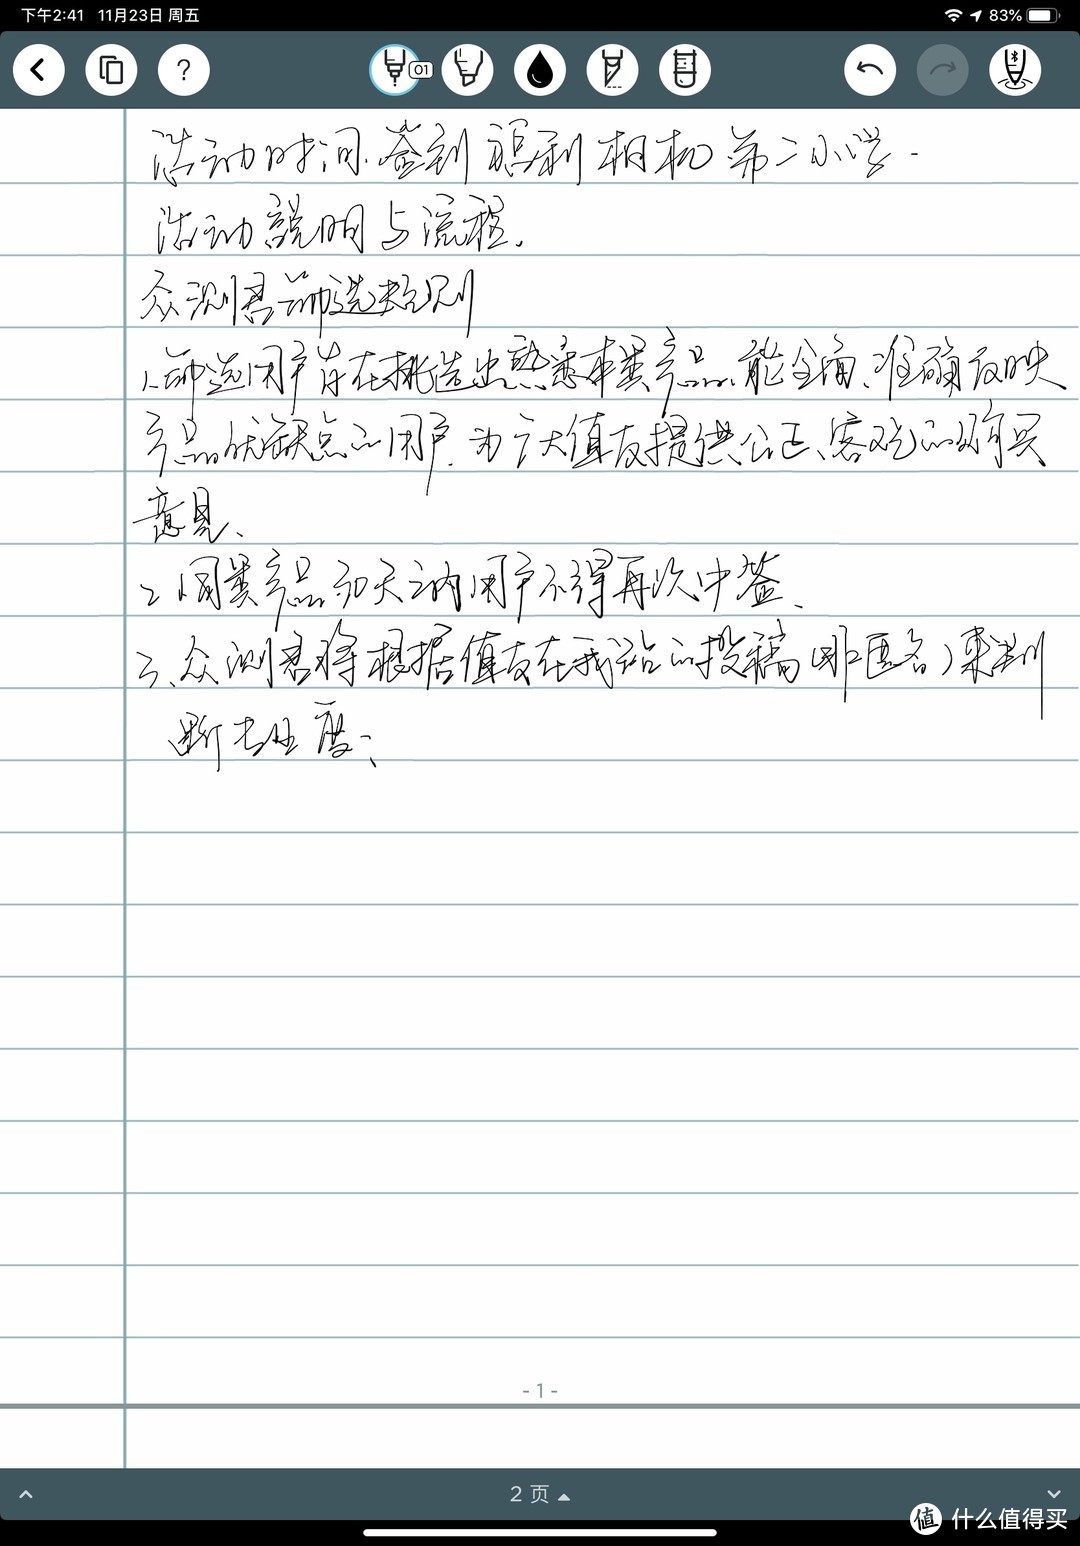 下午2:41 11月23日 周五 83%
?
01
活动时间.签到福利相机第二小学.
活动說明与流程.
众测君筛选规则
1.筛选用户旨在挑选出熟悉本类产品、能全面、准确反映
产品优缺点的用户.为广大值友提供公正、客观的购买
意见、
2、同类产品30天之内用户不得再次中签、
3、众测君将根据值友在我站的投稿(非匿名)来判
断 度、
- 1 -
2 页
值 什么值得买